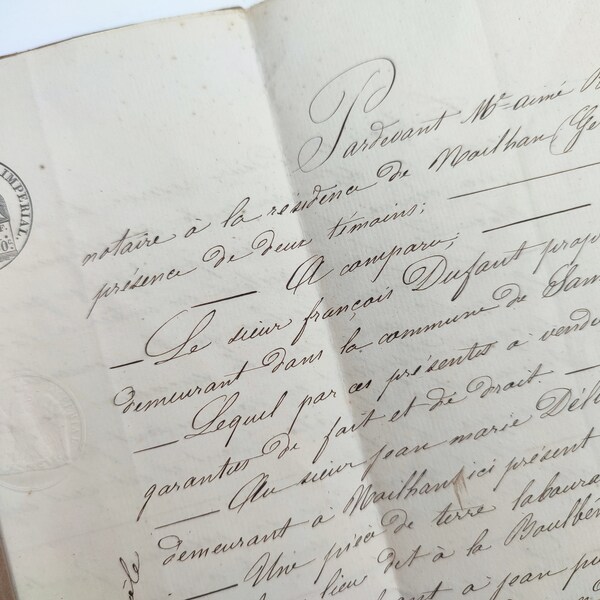 IMPERIAL.
Pardevant Me aimé
notaire à la résidence de Noilhan (Ge
présence de deux témoins;
A comparu;
Le sieur françois Dufaut prop
demeurant dans la commune de Sam
Lequel par ces présentes a vendu
garanties de fait et de droit.
Au sieur jean marie
demeurant à Noilhan, ici présent
Une pièce de terre laboura
lieu dit à la
à jean